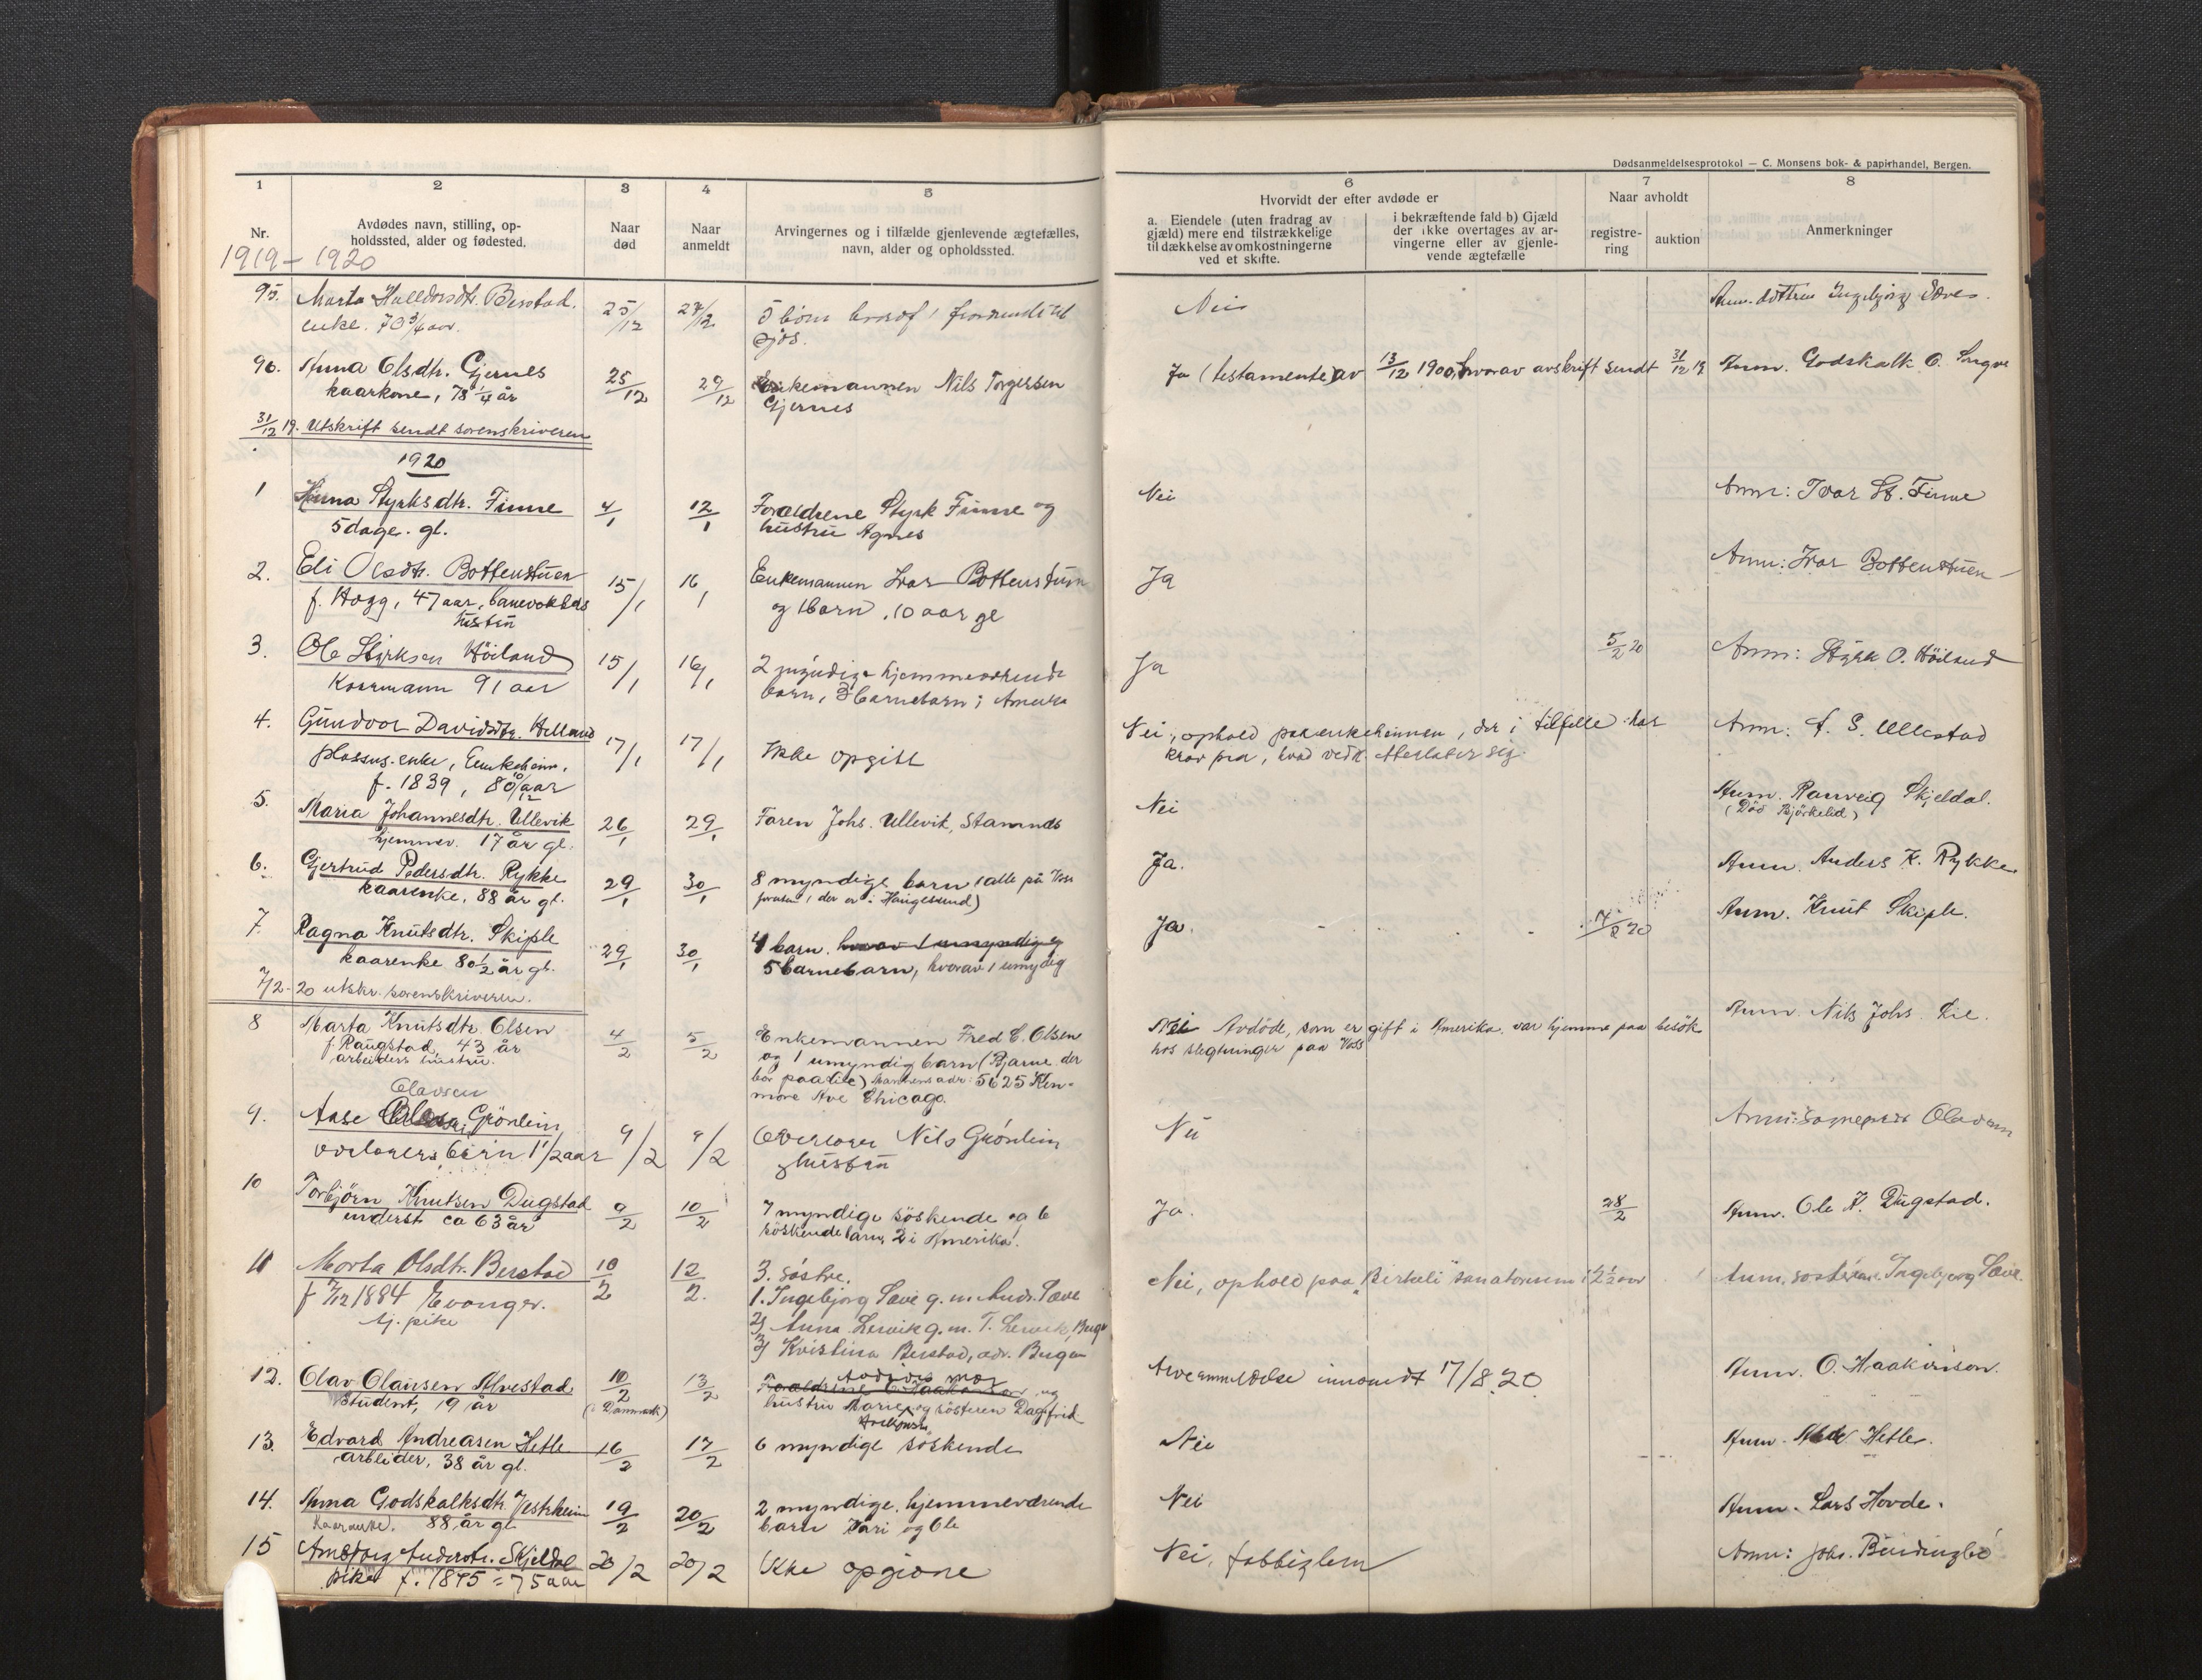 Dødsanmeldelsesprotokol — C. Monsens bok- & papirhandel, Bergen.
1 2 3 4 5 6 7 8
Nr.
Avdødes navn, stilling, op-
holdssted, alder og fødested.
Naar
død
Naar
anmeldt
Arvingernes og i tilfælde gjenlevende ægtefælles,
navn, alder og opholdssted.
Hvorvidt der efter avdøde er
a. Eiendele (uten fradrag av
gjæld) mere end tilstrækkelige
til dækkelse av omkostningerne
ved et skifte.
i bekræftende fald b) Gjæld
der ikke overtages av ar-
vingerne eller av gjenle-
vende ægtefælle
Naar avholdt
registre-
ring
auktion
Anmerkninger
1919 – 1920
95. Marta Halldorsdtr. Berstad. 25/12 27/12 5 børn Nei Anm. dottren Ingebjørg Sæve.
enke. 70 3/4 aar.
96. Anna Olsdtr. Gjernes 25/12 29/12 Enkemannen Nils Torgersen Ja (testamente) av 13/12 1900, hvorav avskrift sendt 31/12 19 Anm. Godskalk O.
kaarkone, 78 1/4 år Gjernes
31/12 19. Utskrift sendt sorenskriveren
1920
1 Styrksdtr. Finne 4/1 12/1 Forældrene Styrk Finne og Nei Anm: Ivar St. Finne
5 dage. gl. hustru Agnes
2. Eli Olsdtr. Bottenstuen 15/1 16/1 Enkemannen Ivar Bottenstuen Ja Anm: Ivar Bottenstuen
f. Hogg, 47 aar, banevokters og 1 barn, 10 aar gl
hustru
3. Ole Styrksen Höiland 15/1 16/1 2 myndige hjemmeværende Ja 5/2 20 Anm: Styrk O. Höiland
Kaarmann 91 aar barn, 3 barnebarn i Amerika
4. Gundvor Davidsdtr. Helland 17/1 17/1 Ikke opgitt Nei, ophold paa enkeheimen, der i tilfelle har Anm: S. Ullestad
plassus. enke, Enkeheim. krav paa, hvad vedk. efterlater sig.
f. 1839, 80 10/12 aar
5. Maria Johannesdtr. Ullevik 26/1 29/1 Faren Johs. Ullevik, Stamnes Nei Anm. Ranveig Skjeldal.
hjemmev. 17 år gl. (Död Björkelid)
6. Gjertrud Pedersdtr. Rykke 29/1 30/1 8 myndige barn (alle på Voss Ja. Anm. Anders K. Rykke.
kaarenke, 88 år gl. foruten 1, der er i Haugesund)
7. Ragna Knutsdtr. Skiple 29/1 30/1 4 barn. hvorav 1 umyndig og Ja. 17/2 20 Anm. Knut Skiple.
kaarenke 80 1/2 år gl. 5 barnebarn, hvorav 1 umydig
7/2-20 utskr. sorenskriveren.
8 Marta Knutsdtr. Olsen 4/2 5/2 Enkemannen Fred C. Olsen Nei Avdöde, som er gift i Amerika, var hjemme paa besök Anm. Nils Johs. Lie.
f. Raugstad, 43 år og 1 umyndig barn (Bjarne der hos slegtninger paa Voss
arbeiders hustru. bor paa Lie) Mannens adr: 5625 Ken-
more Ave Chicago.
Olavsen
9. Aase Grönlien 9/2 9/2 Overlærer Nils Grönlien Nei Anm: Sogneprest Olavsen
overlærers barn 1 1/2 aar og hustru
10 Torbjörn Knutsen Dugstad 9/2 10/2 7 myndige söskende og 6 Ja. 28/2 Anm. Ole K. Dugstad.
inderst ca 63 år söskendebarn, 2 i Amerika.
11 Marta Olsdtr. Berstad 10/2 12/2. 3. søstre. Nei, ophold paa „Birkeli" sanatorium i 2 1/2 aar Anm. Ingebjørg Sæve.
f 7/12 1884 Evanger. 1. Ingebjørg Sæve g. m. Andr. Sæve
tj. pike 2) Anna Lervik g. m. T. Lervik,
3) Kristina Berstad, adr. Bergen
12. Olav Olausen Alvestad 10/2 13/2 Forældrene O. Haakonson og Arveanmeldelse innsendt 17/8.20 Anm. O. Haakonson.
Student, 19 år (i Danmark) hustru Marie og søsteren Dagfrid
13. Edvard Andreasen Hetle 16/2 17/2 6 myndige söskende Nei Anm. Hetle.
arbeider, 38 år gl.
14. Anna Godskalksdtr. Vestrheim 19/2 20/2 2 myndige, hjemmeværende Nei Anm. Lars Hovde.
kaarenke. 88 år gl barn Kari og Ole
15 Andersdtr. Skjeldal 20/2 20/2 Ikke opgivne Nei, fattiglem Anm: Johs.
pike f. 1845 = 75 aar